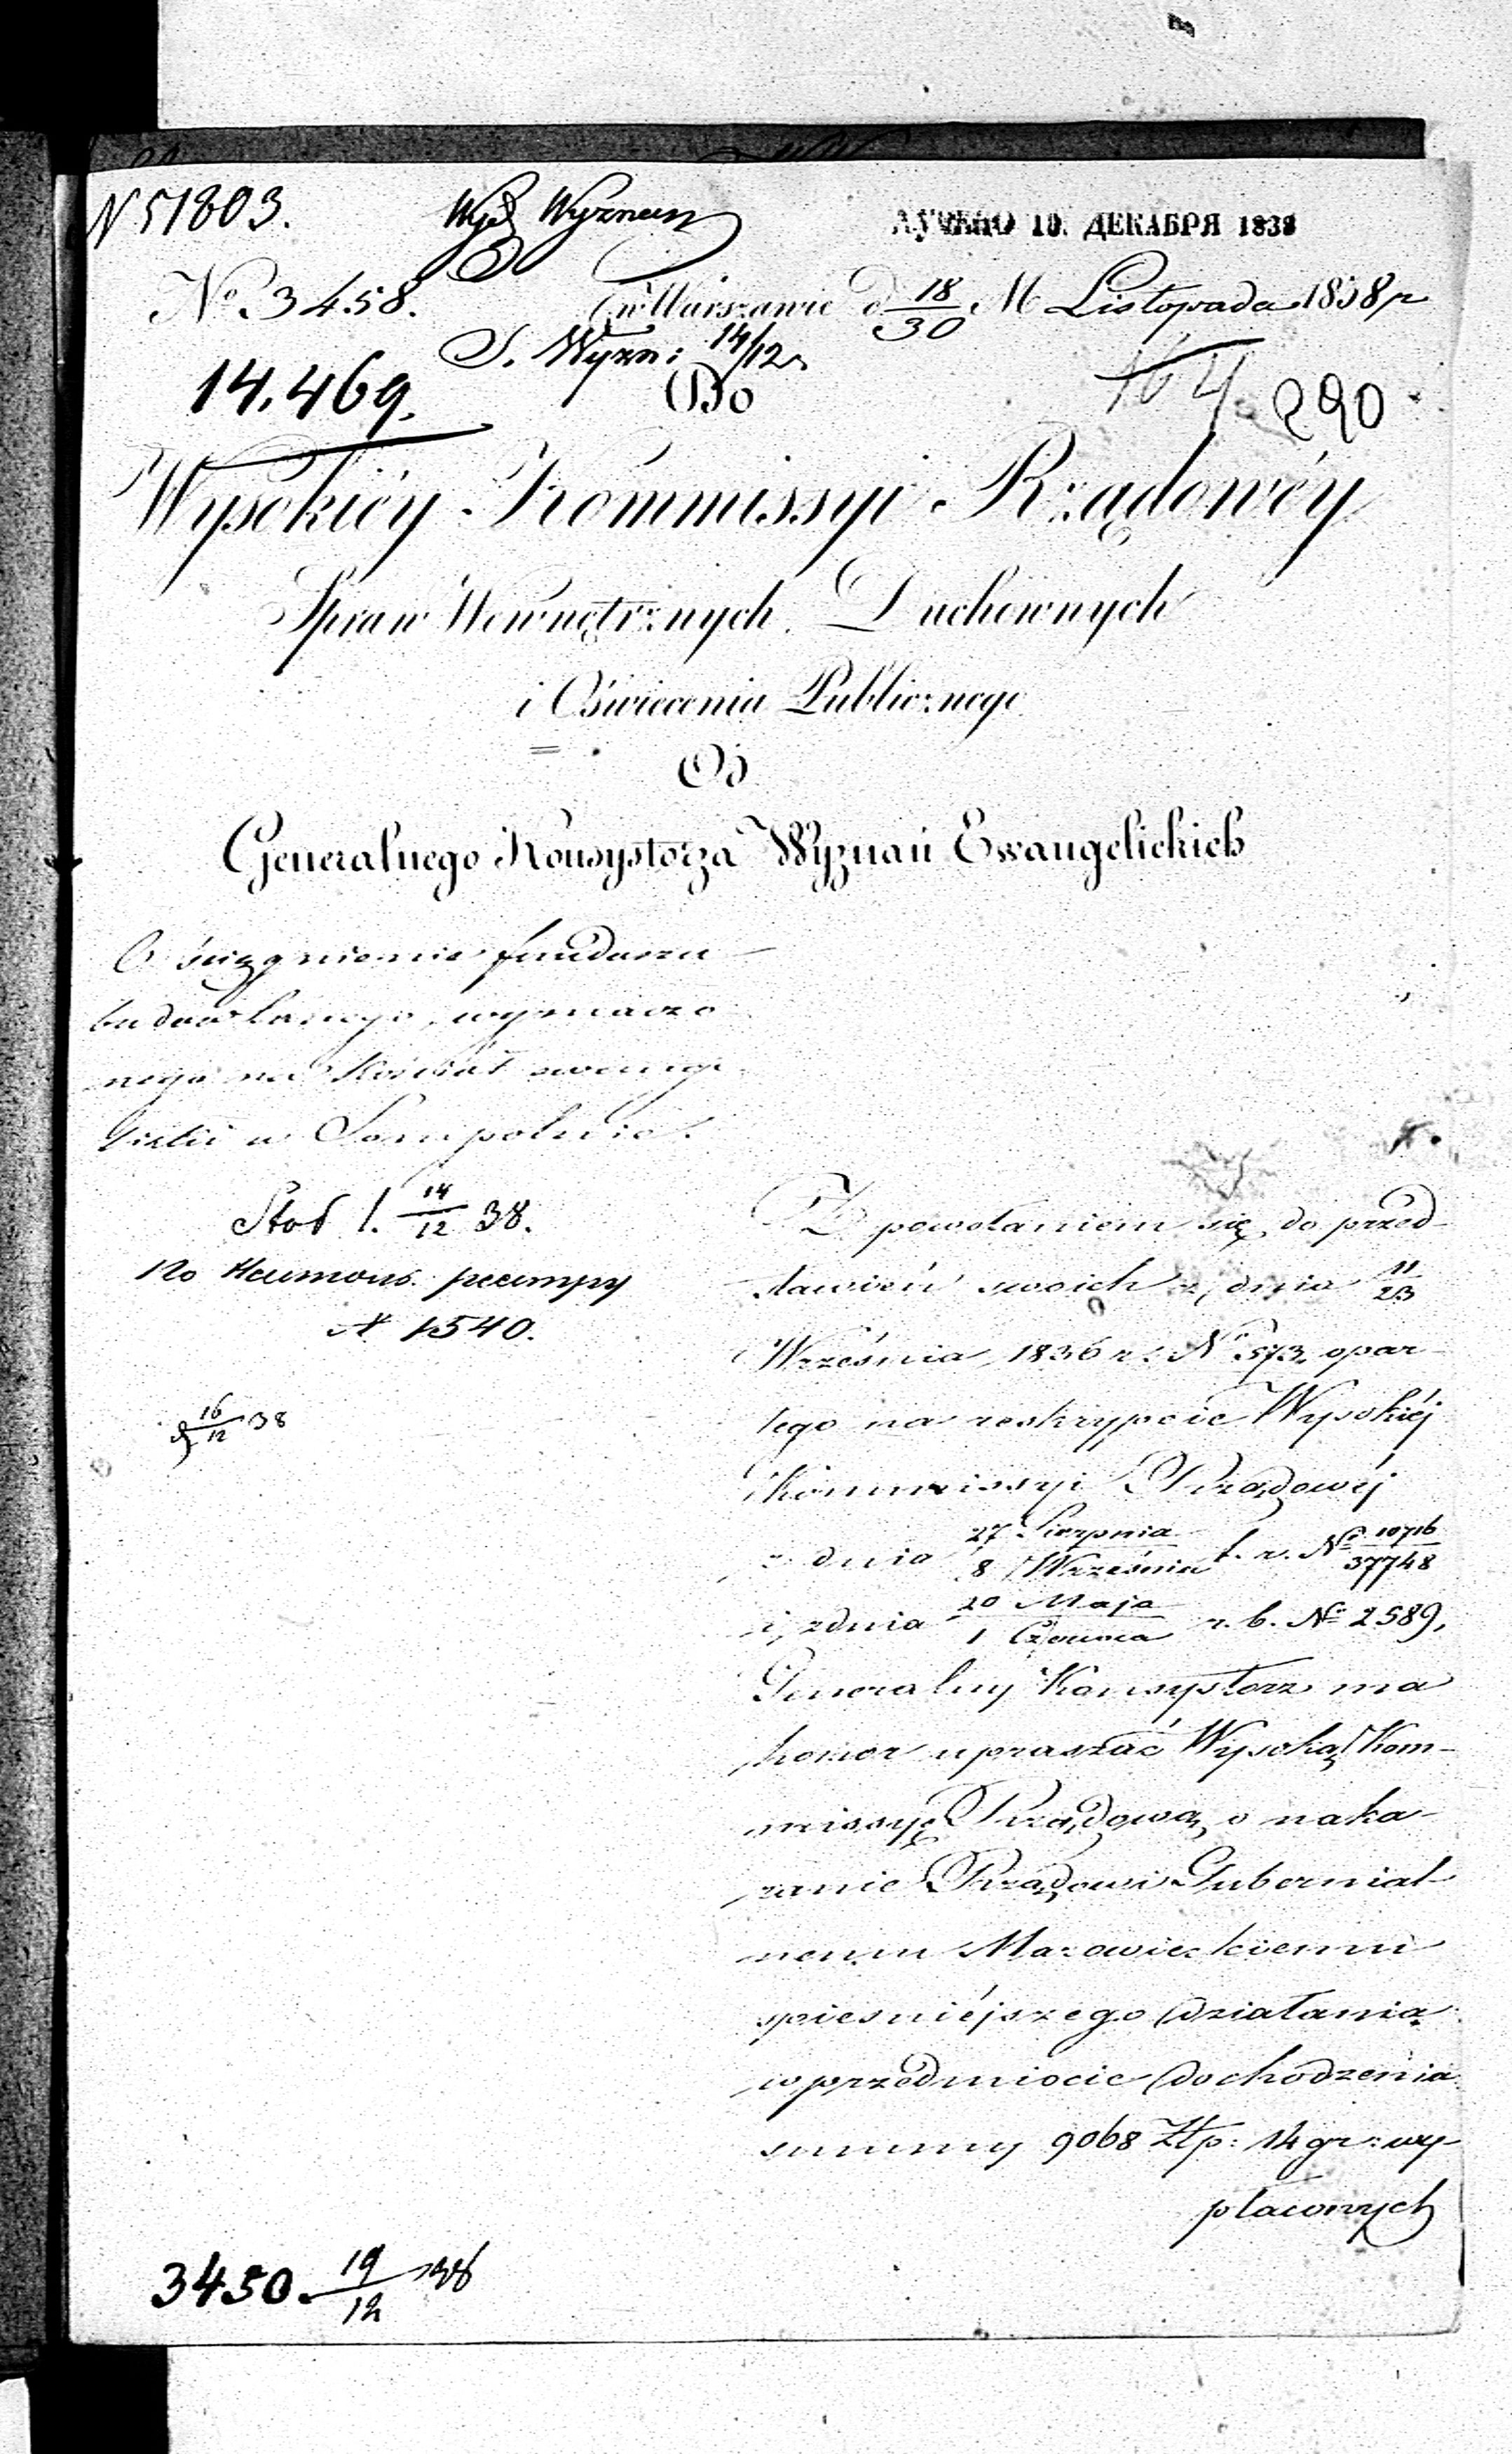 N 51803.
Wyd Wyznań
ЛУЧЕНО 10. ДЕКАБРЯ 1838
No 3458.
w Warszawie d 18/30 M Listopada 1838 r
S. Wyzn: 14/12
14.469.
Do
164. 290
Wysokiéy Kommissyi Rządowéy
Spraw Wewnętrznych Duchownych
i Oświecenia Publicznego
Od
Generalnego Konsystorza Wyznań Ewangelickich
O ściągnienie funduszu
budowlanego, wyznaczo
nego na Kościół ewange
licki w Sompolnie.
Stos 1. 14/12 38.
No
N 1540.
16/12 38
Z powołaniem się do przed-
stawień swoich z dnia 11/23
Września 1836 r. No 573, opar
tego na reskrypcie Wysokiéj
Kommissyi Rządowéj
z dnia 27 Sierpnia/8 Września t. r. No 10716/37748
i z dnia 20 Maja/1 Czerwca r. b. No 2589,
Generalny Konsystorz ma
honor upraszać Wysoką Kom-
missyę Rządową o naka-
zanie Rządowi Gubernial-
nemu Mazowieckiemu
spiesniéjszego działania
w przédmiocie dochodzenia
summy 9068 Złp: 14 gr: wy-
płaconych
3450. 19/12 38